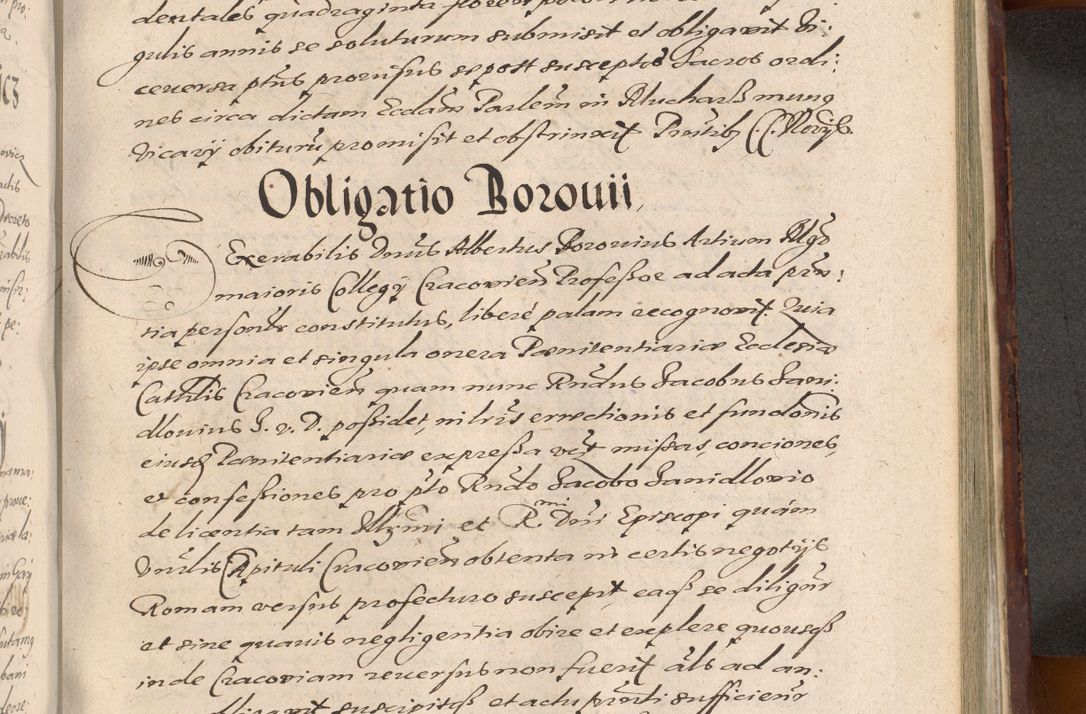 dentales quadraginta
gulis annis se soluturum submisit et obligavit Vi:
ceversa ptus provisus se post susceptos Sacros ordi:
nes circa dictam Ecclam Parlem in
Vicarij obiturum promisit et obstrinxit
Obligatio Borouii
Venerabilis Dnus Albertus Borovius Artium Mgr
maioris Collegij Cracovien Professor ad acta prn:
tia personlr constitutus, liberè palam recognovit. Quia
ipse omnia et singula onera Pœnitentiariæ Ecclesiæ
Cathlis Cracovien quam nunc Rndus Jacobus Jani:
dlovius J. v. D. possidet, in lris erectionis et fundonis
eiusd Pœnitentiariæ expressa vt missas, conciones,
et confessiones pro pto Rndo Jacobo Janidlovio
de licentia tam Illmi et Rmi Dni Episcopi quàm
Vnrlis Capituli Cracovien obtenta in certis negotijs
Romam versus profecturo suscepit, eaq se diligenr
et sine quavis negligentia obire et explere quousq
inde Cracoviam reversus non fuerit als ad an:
suscipitq et actu prnti sufficienr